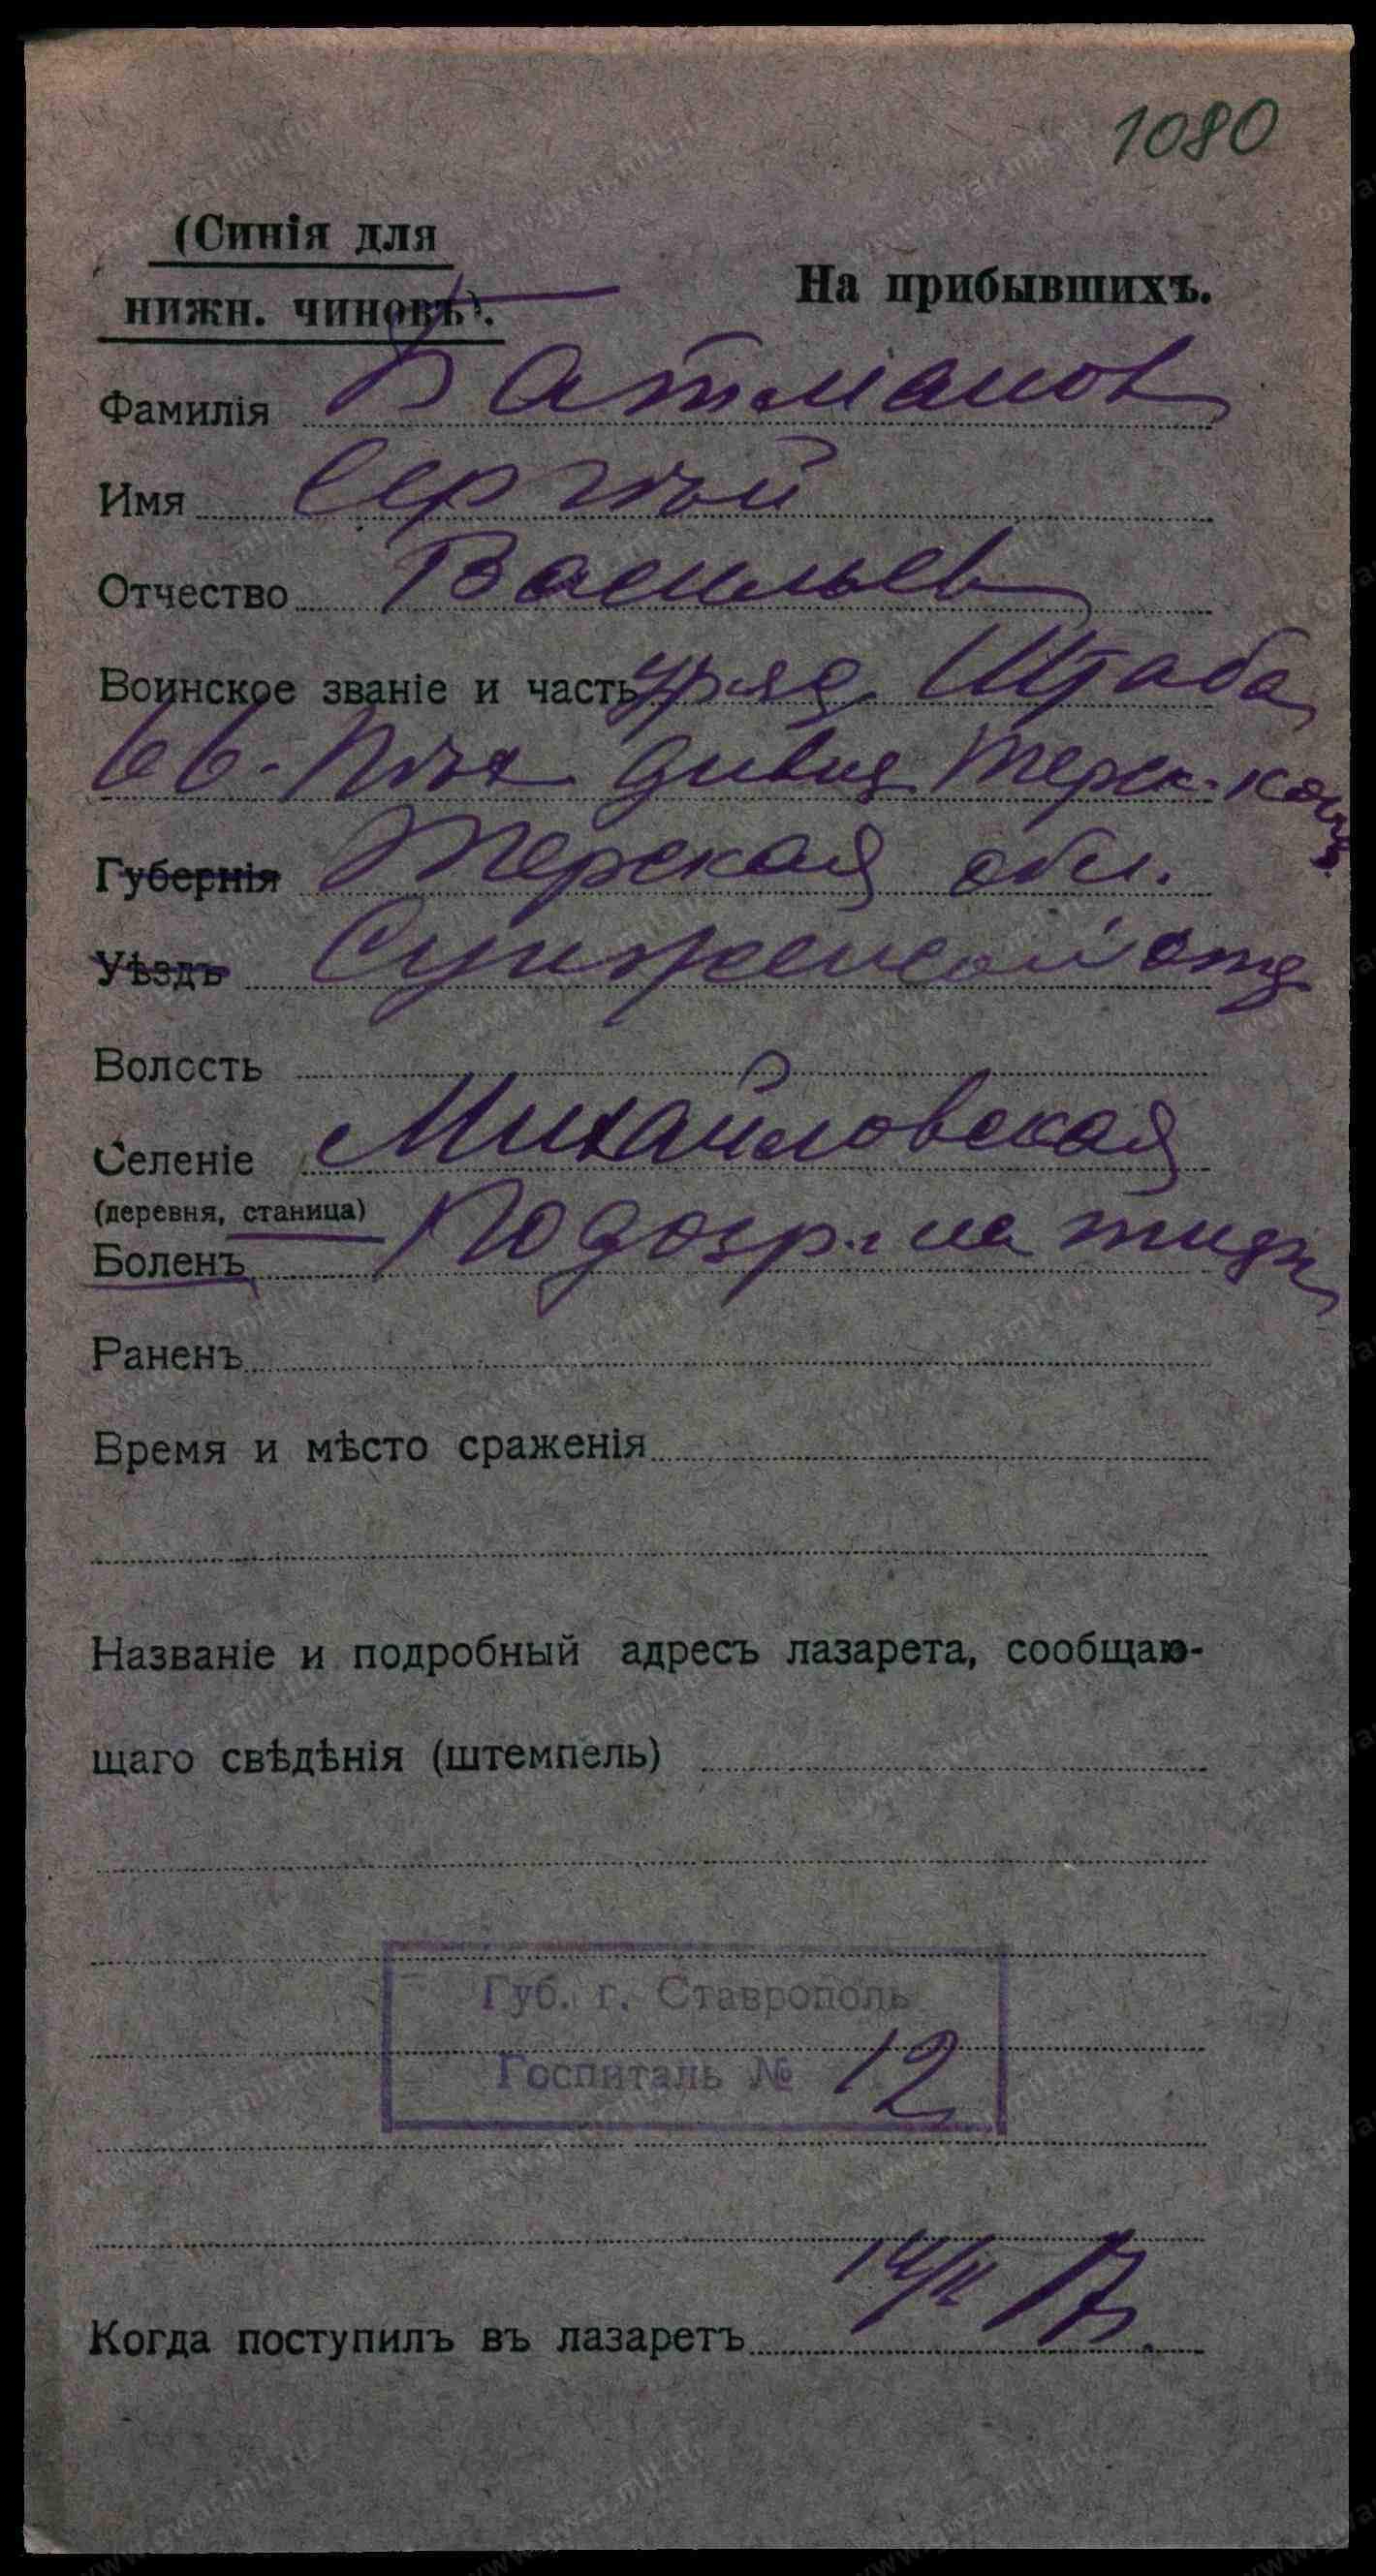 1080
(Синія для
нижн. чиновъ).
На прибывшихъ.
Фамилія Батманов
Имя Сергѣй
Отчество Васильев
Воинское званіе и часть уряд. Штаба
66-Пѣх дивиз Терск. каз.
Губернія Терская обл.
Уѣздъ Сунженской отд
Волость
Селеніе Михайловская
(деревня, станица)
Боленъ Подозр. на тиф
Раненъ
Время и мѣсто сраженія
Названіе и подробный адресъ лазарета, сообщаю-
щаго свѣдѣнія (штемпель)
Губ. г. Ставрополь
Госпиталь № 12
Когда поступилъ въ лазаретъ 14/II 17.